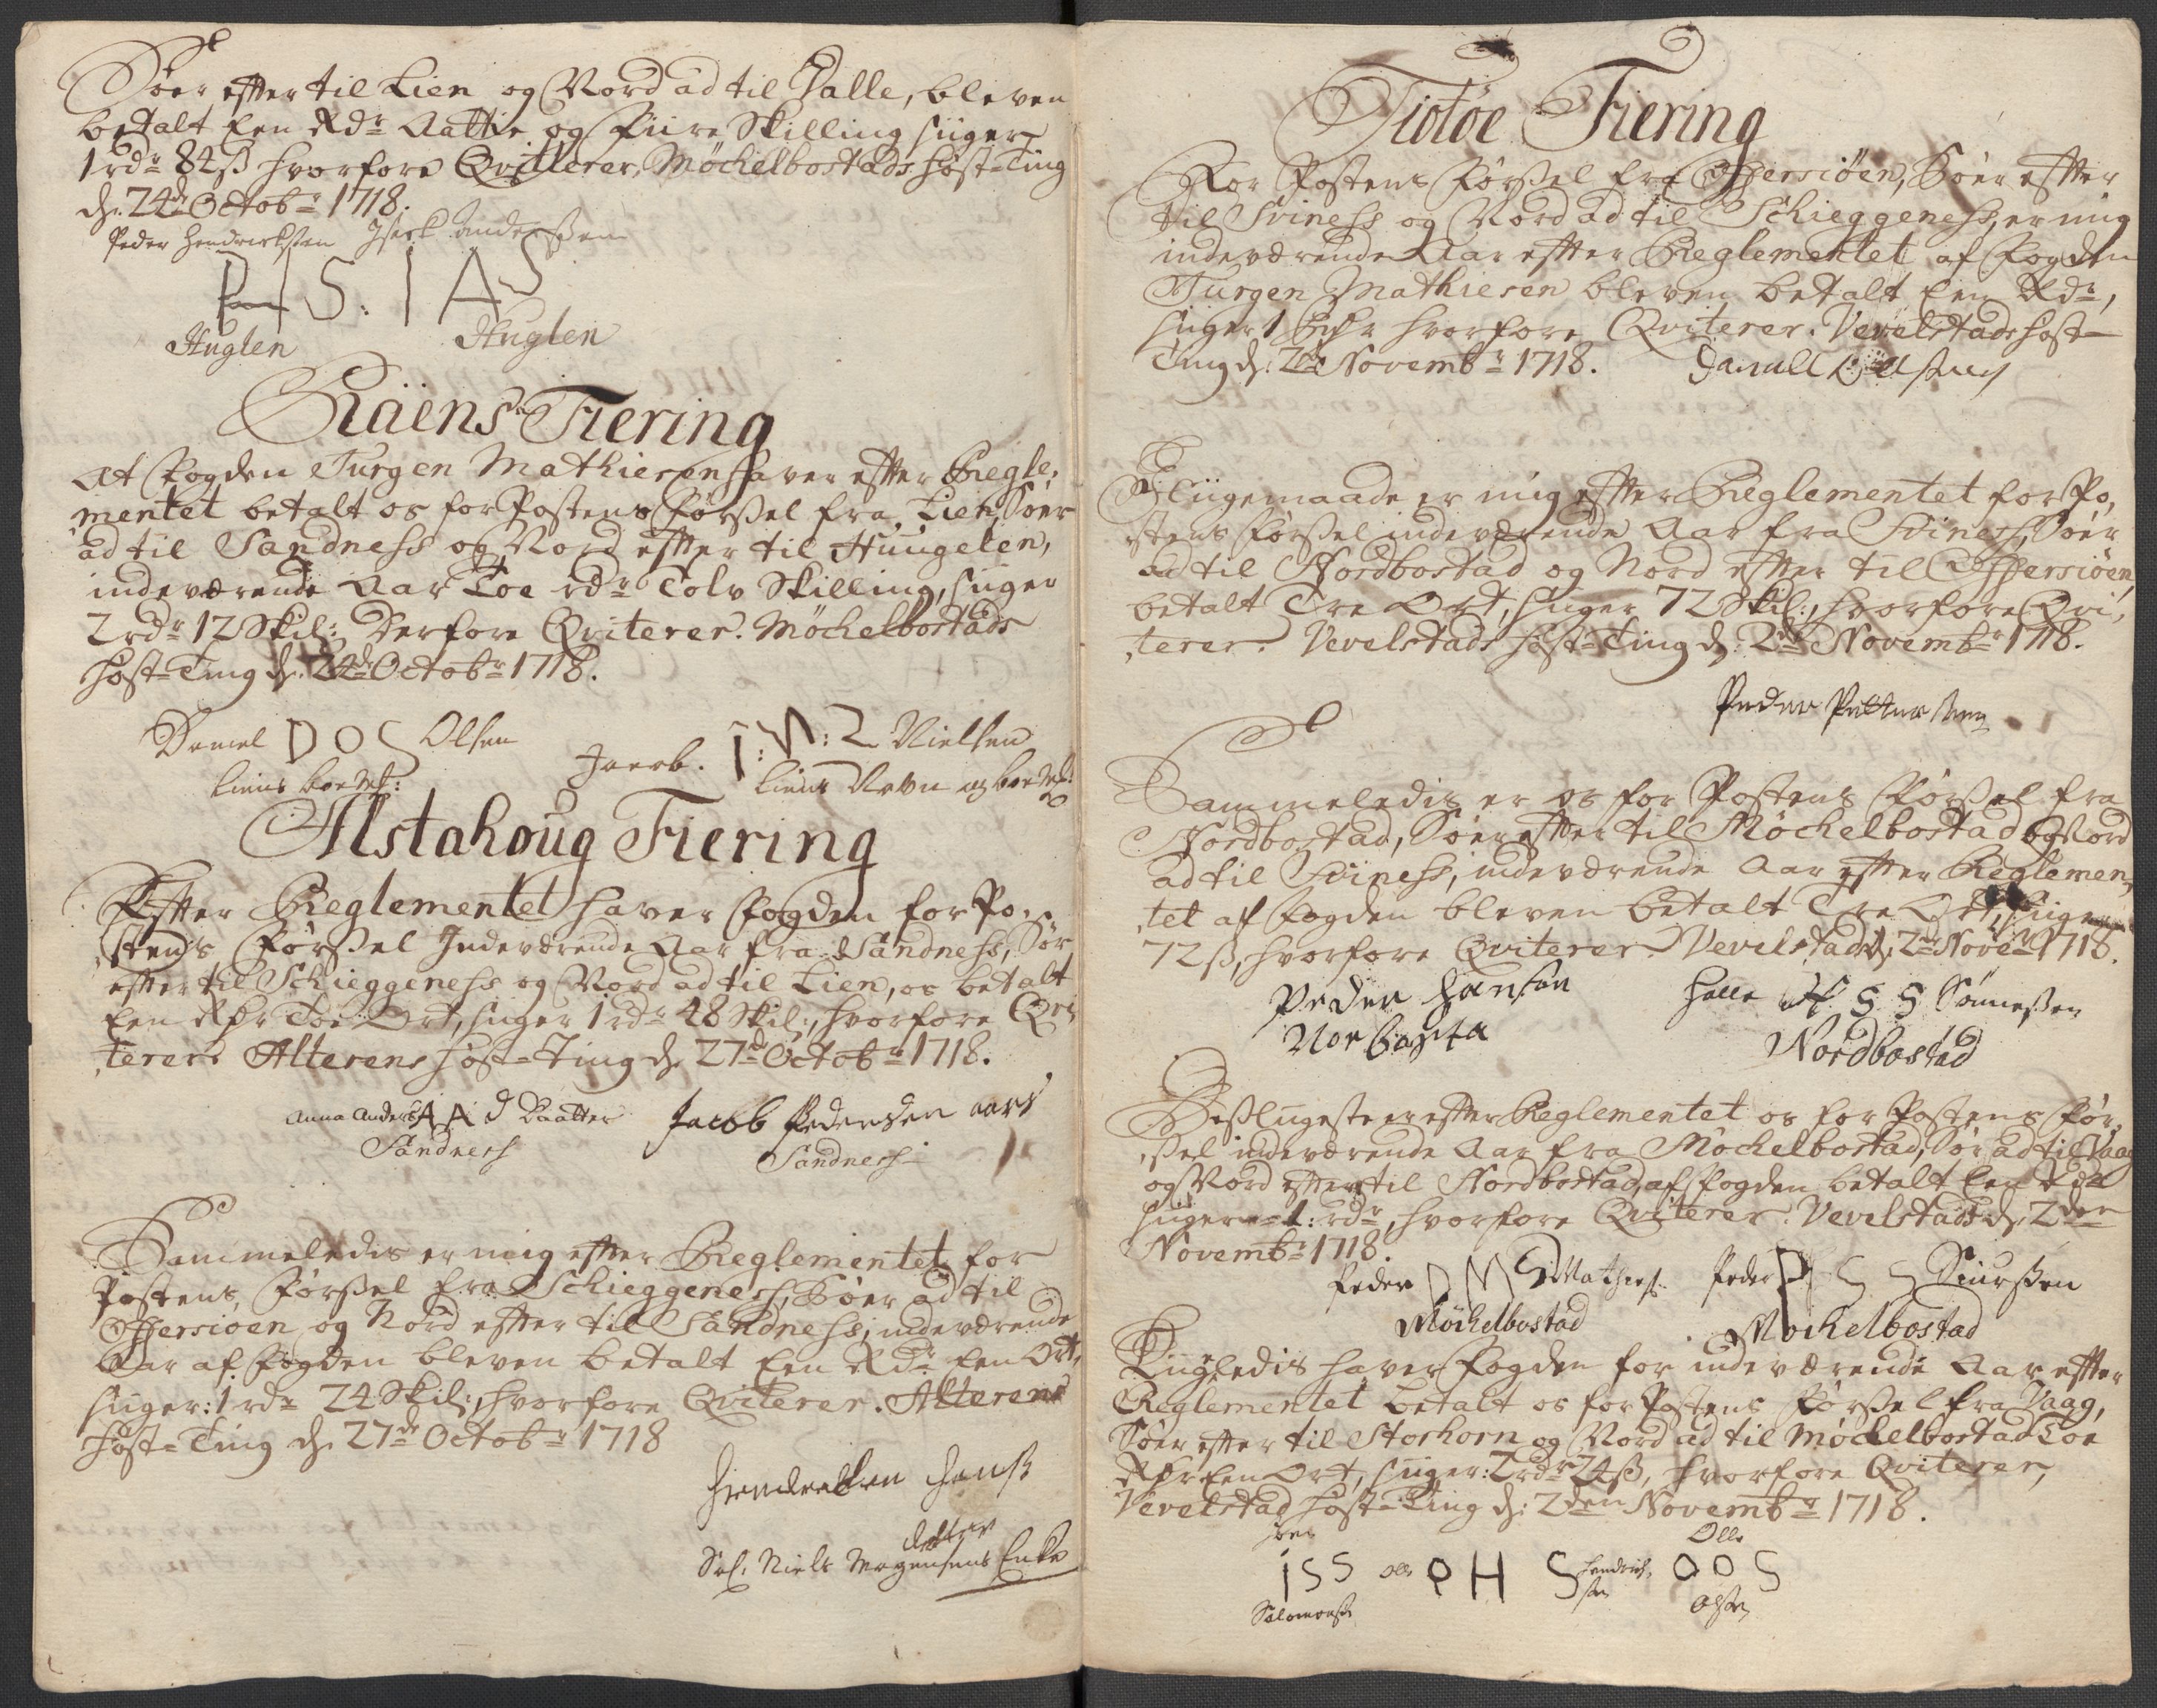 Söer effter til Lien og Nord ad til Valle, bleven
betalt Een Rdr Aattie og Fiire Skilling siiger
1 rdr 84 ß hvorfore Qvitterer, Möchelbostads Höst-Ting
d. 24de Octobr 1718.
Peder Hendrichsen Isach Anderssen
P H S : I A S
Huglen Huglen
Räens Fiering
At Fogden Jürgen Mathiesen haver effter Regle,
mentet betalt os for Postens Förssel fra Lien Söer
ad til Sandness og Nord effter til Huugelen,
indeværende Aar Toe rdr Tolv Skilling, siiger
2 rdr 12 Skil: Derfore Qviterer. Möchelbostads
Höst-Ting d. 24de Octobr 1718.
Daniel D O S Olsen
Jacob. I : N : S Nielsen
Alstahoug Fiering
Effter Reglementet haver Fogden for Po,
stens Förssel Indeværende Aar fra Sandness, Sör
effter til Schieggeness og Nord ad til Lien, os betalt
Een Rdr Toe Ort, siiger 1 rdr 48 Skil:, hvorfore Qvi
terer. Alterens Höst-Ting d. 27de Octobr 1718.
Anna Anders A A d Daatter Jacob Pedersen aars
Sandness Sandness
Sammeledis er mig effter Reglementet for
Postens Förssel fra Schieggeness, Söer ad til
Offersiöen og Nord effter til Sandness, indeværende
Aar af Fogden bleven betalt Een Rdr Een Ort,
siiger: 1 rdr 24 Skil:, hvorfore Qviterer. Alterens
Höst-Ting d. 27de Octobr 1718
Sal. Niels Mogensens Enke
Tiötöe Fiering
For Postens Förssel fra Offersiöen, Söer effter
til Sviness og Nord ad til Schieggeness, er mig
indeværende Aar effter Reglementet af Fogden
Jürgen Mathiesen bleven betalt Een Rdr,
siiger 1 Rdr hvorfore Qviterer. Vevelstads Höst
Ting d. 2de Novembr 1718.
Iliigemaade er mig effter Reglementet for Po,
stens Förssel indeværende Aar fra Sviness, Söer
ad til Nordbostad og Nord effter til Offersiöen
betalt Tre Ort, siiger 72 Skil:, hvorfore Qvi,
terer. Vevelstads Höst-Ting d. 2de Novembr 1718.
Peder Pettersen
Sammeledis er os for Postens Förssel fra
Nordbostad, Söer effter til Möchelbostad og Nord
ad til Sviness, indeværende Aar effter Reglemen,
tet af Fogden bleven betalt Tre Ort, siiger
72 ß, hvorfore Qviterer. Vevelstad d. 2de Novr 1718.
Peder Hansön Halle H S S Sönnessen
Nordbostad
Dessliigeste er effter Reglementet os for Postens För,
ssel indeværende Aar fra Möchelbostad, Sör ad til Vaag
og Nord effter til Nordbostad, af Fogden betalt Een Rdr
siiger 1: rdr, hvorfore Qviterer. Vevelstads d. 2den
Novembr 1718.
Peder P M S Mathies: Peder P S S Siurssen
Möchelbostad Möchelbostad
Liigledis haver Fogden for indeværende Aar effter
Reglementet betalt os for Postens Förssel fra Vaag,
Söer effter til Storhorn og Nord ad til Möchelbostad Toe
Rdr Een Ort, siiger: 2 rdr 24 ß, hvorfore Qviterer,
Vevelstad Höst-Ting d: 2den Novembr 1718.
Olle
I S S Olle O H S Hendrich O O S
Salomonss sen Olsen